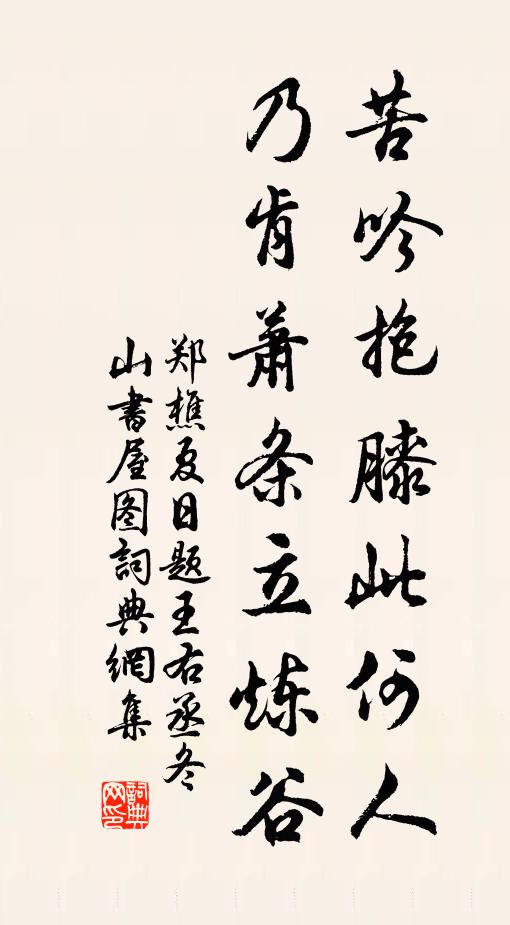 苦吟抱膝此何人
乃肯蕭条立炼谷
郑樵夏日题王右丞冬
山書屋图詞典網集
詞典
网印